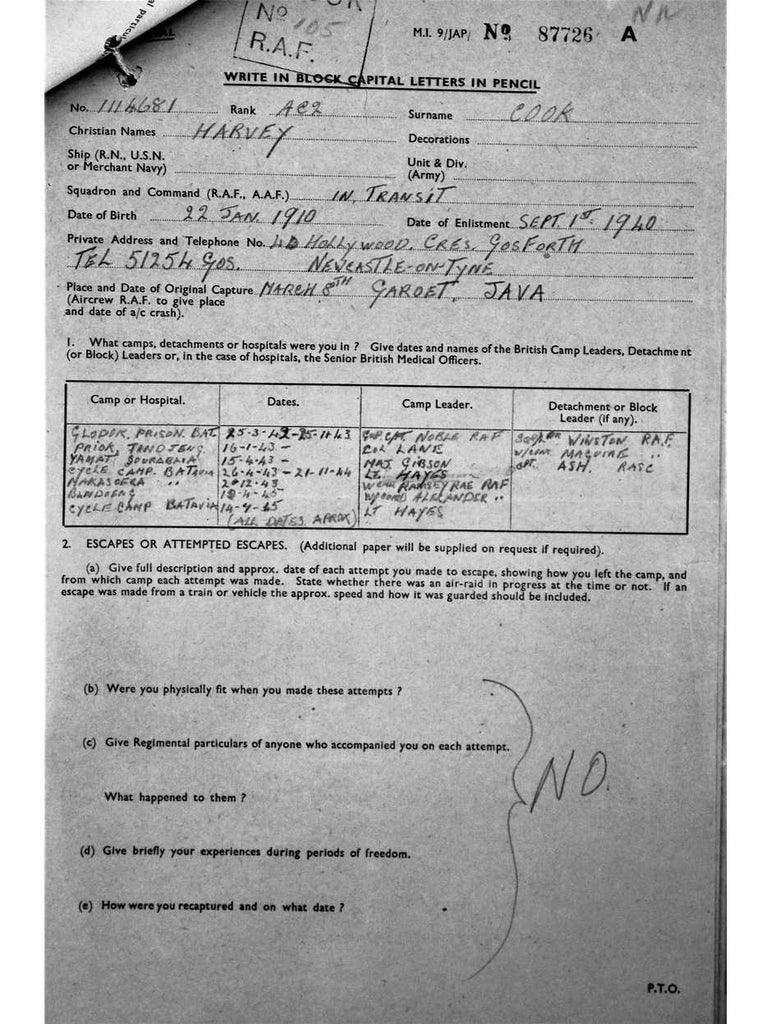 al particul
Nº 105
R.A.F.
M.I. 9/JAP/ Nº 87726 A
WRITE IN BLOCK CAPITAL LETTERS IN PENCIL
No. 1114681 Rank AC2 Surname COOK
Christian Names HARVEY Decorations
Ship (R.N., U.S.N. or Merchant Navy) Unit & Div. (Army)
Squadron and Command (R.A.F., A.A.F.) IN TRANSIT
Date of Birth 22 JAN. 1910 Date of Enlistment SEPT. 1ST. 1940
Private Address and Telephone No. 4D HOLLYWOOD. CRES. GOSFORTH
TEL 51254 GOS. NEWCASTLE-ON-TYNE
Place and Date of Original Capture MARCH 8TH GAROET, JAVA
(Aircrew R.A.F. to give place
and date of a/c crash).
1. What camps, detachments or hospitals were you in ? Give dates and names of the British Camp Leaders, Detachment
(or Block) Leaders or, in the case of hospitals, the Senior British Medical Officers.
Camp or Hospital. Dates. Camp Leader. Detachment or Block Leader (if any).
GLODOK. PRISON. BAT. 25-3-42-25-11-43 GRP. CPT. NOBLE RAF WINSTON R.A.F.
PRIOK, TONDJENG. 16-1-43 - COL LANE W/COM. MAGUIRE "
15-4-43 - MAJ. GIBSON CPT. ASH. RASC
CYCLE CAMP. BATAVIA 26-4-43 - 21-11-44 LT HAYES
MAKASOERA " 2-12-43 RAF
BANDOENG -4-45 W/COMD ALEXANDER "
CYCLE CAMP BATAVIA 14-9-45 LT HAYES
(ALL DATES APROX)
2. ESCAPES OR ATTEMPTED ESCAPES. (Additional paper will be supplied on request if required).
(a) Give full description and approx. date of each attempt you made to escape, showing how you left the camp, and
from which camp each attempt was made. State whether there was an air-raid in progress at the time or not. If an
escape was made from a train or vehicle the approx. speed and how it was guarded should be included.
(b) Were you physically fit when you made these attempts ?
(c) Give Regimental particulars of anyone who accompanied you on each attempt.
NO.
What happened to them ?
(d) Give briefly your experiences during periods of freedom.
(e) How were you recaptured and on what date ?
P.T.O.